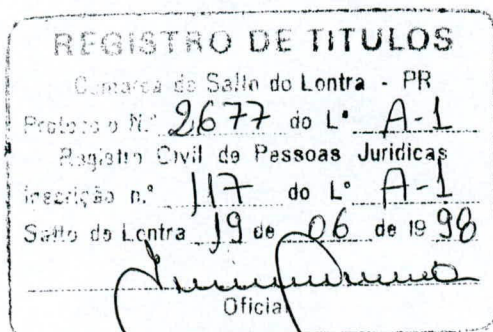 REGISTRO DE TITULOS
Comarca de Salto do Lontra - PR
Protocolo N.º 2677 do L.º A-1
Registro Civil de Pessoas Juridicas
inscrição n.º 117 do L.º A-1
Salto do Lontra 19 de 06 de 19 98
Oficial